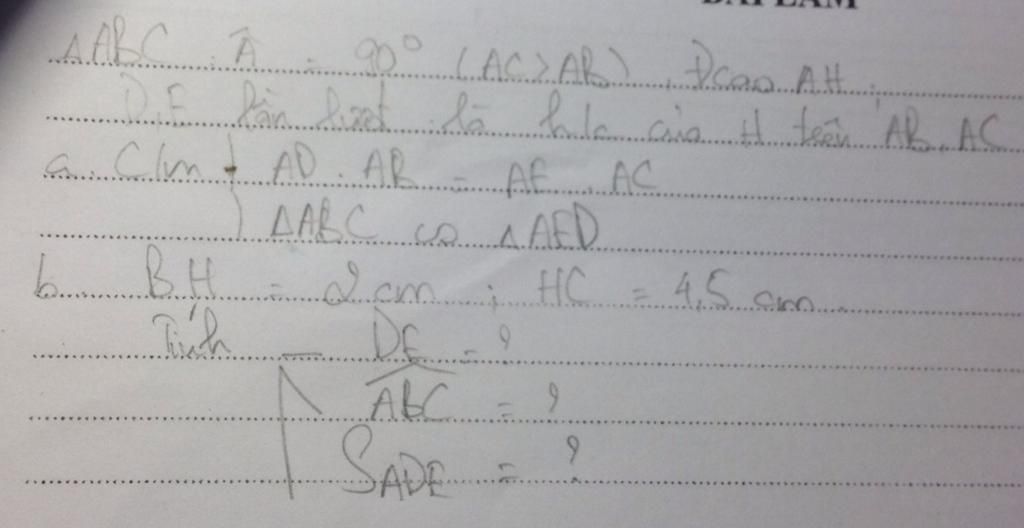 BÀI LÀM
ΔABC . Â = 90° (AC > AB) , Đcao AH .
D, E lần lượt là h/c của H trên AB, AC
a. C/m + AD . AB = AE . AC
ΔABC ∽ ΔAED
b. BH = 2 cm ; HC = 4,5 cm
Tính — DE = ?
ABC = ?
SADE = ?